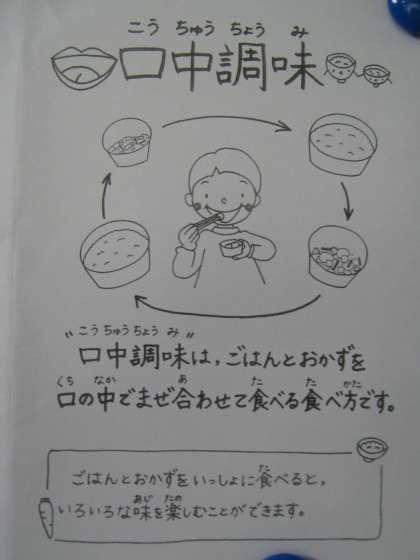 こう ちゅう ちょう み
口中調味
こうちゅうちょう み
"口中調味"は,ごはんとおかずを
くち なか あ た た かた
口の中でまぜ合わせて食べる食べ方です。
た
ごはんとおかずをいっしょに食べると,
あじ たの
いろいろな味を楽しむことができます。